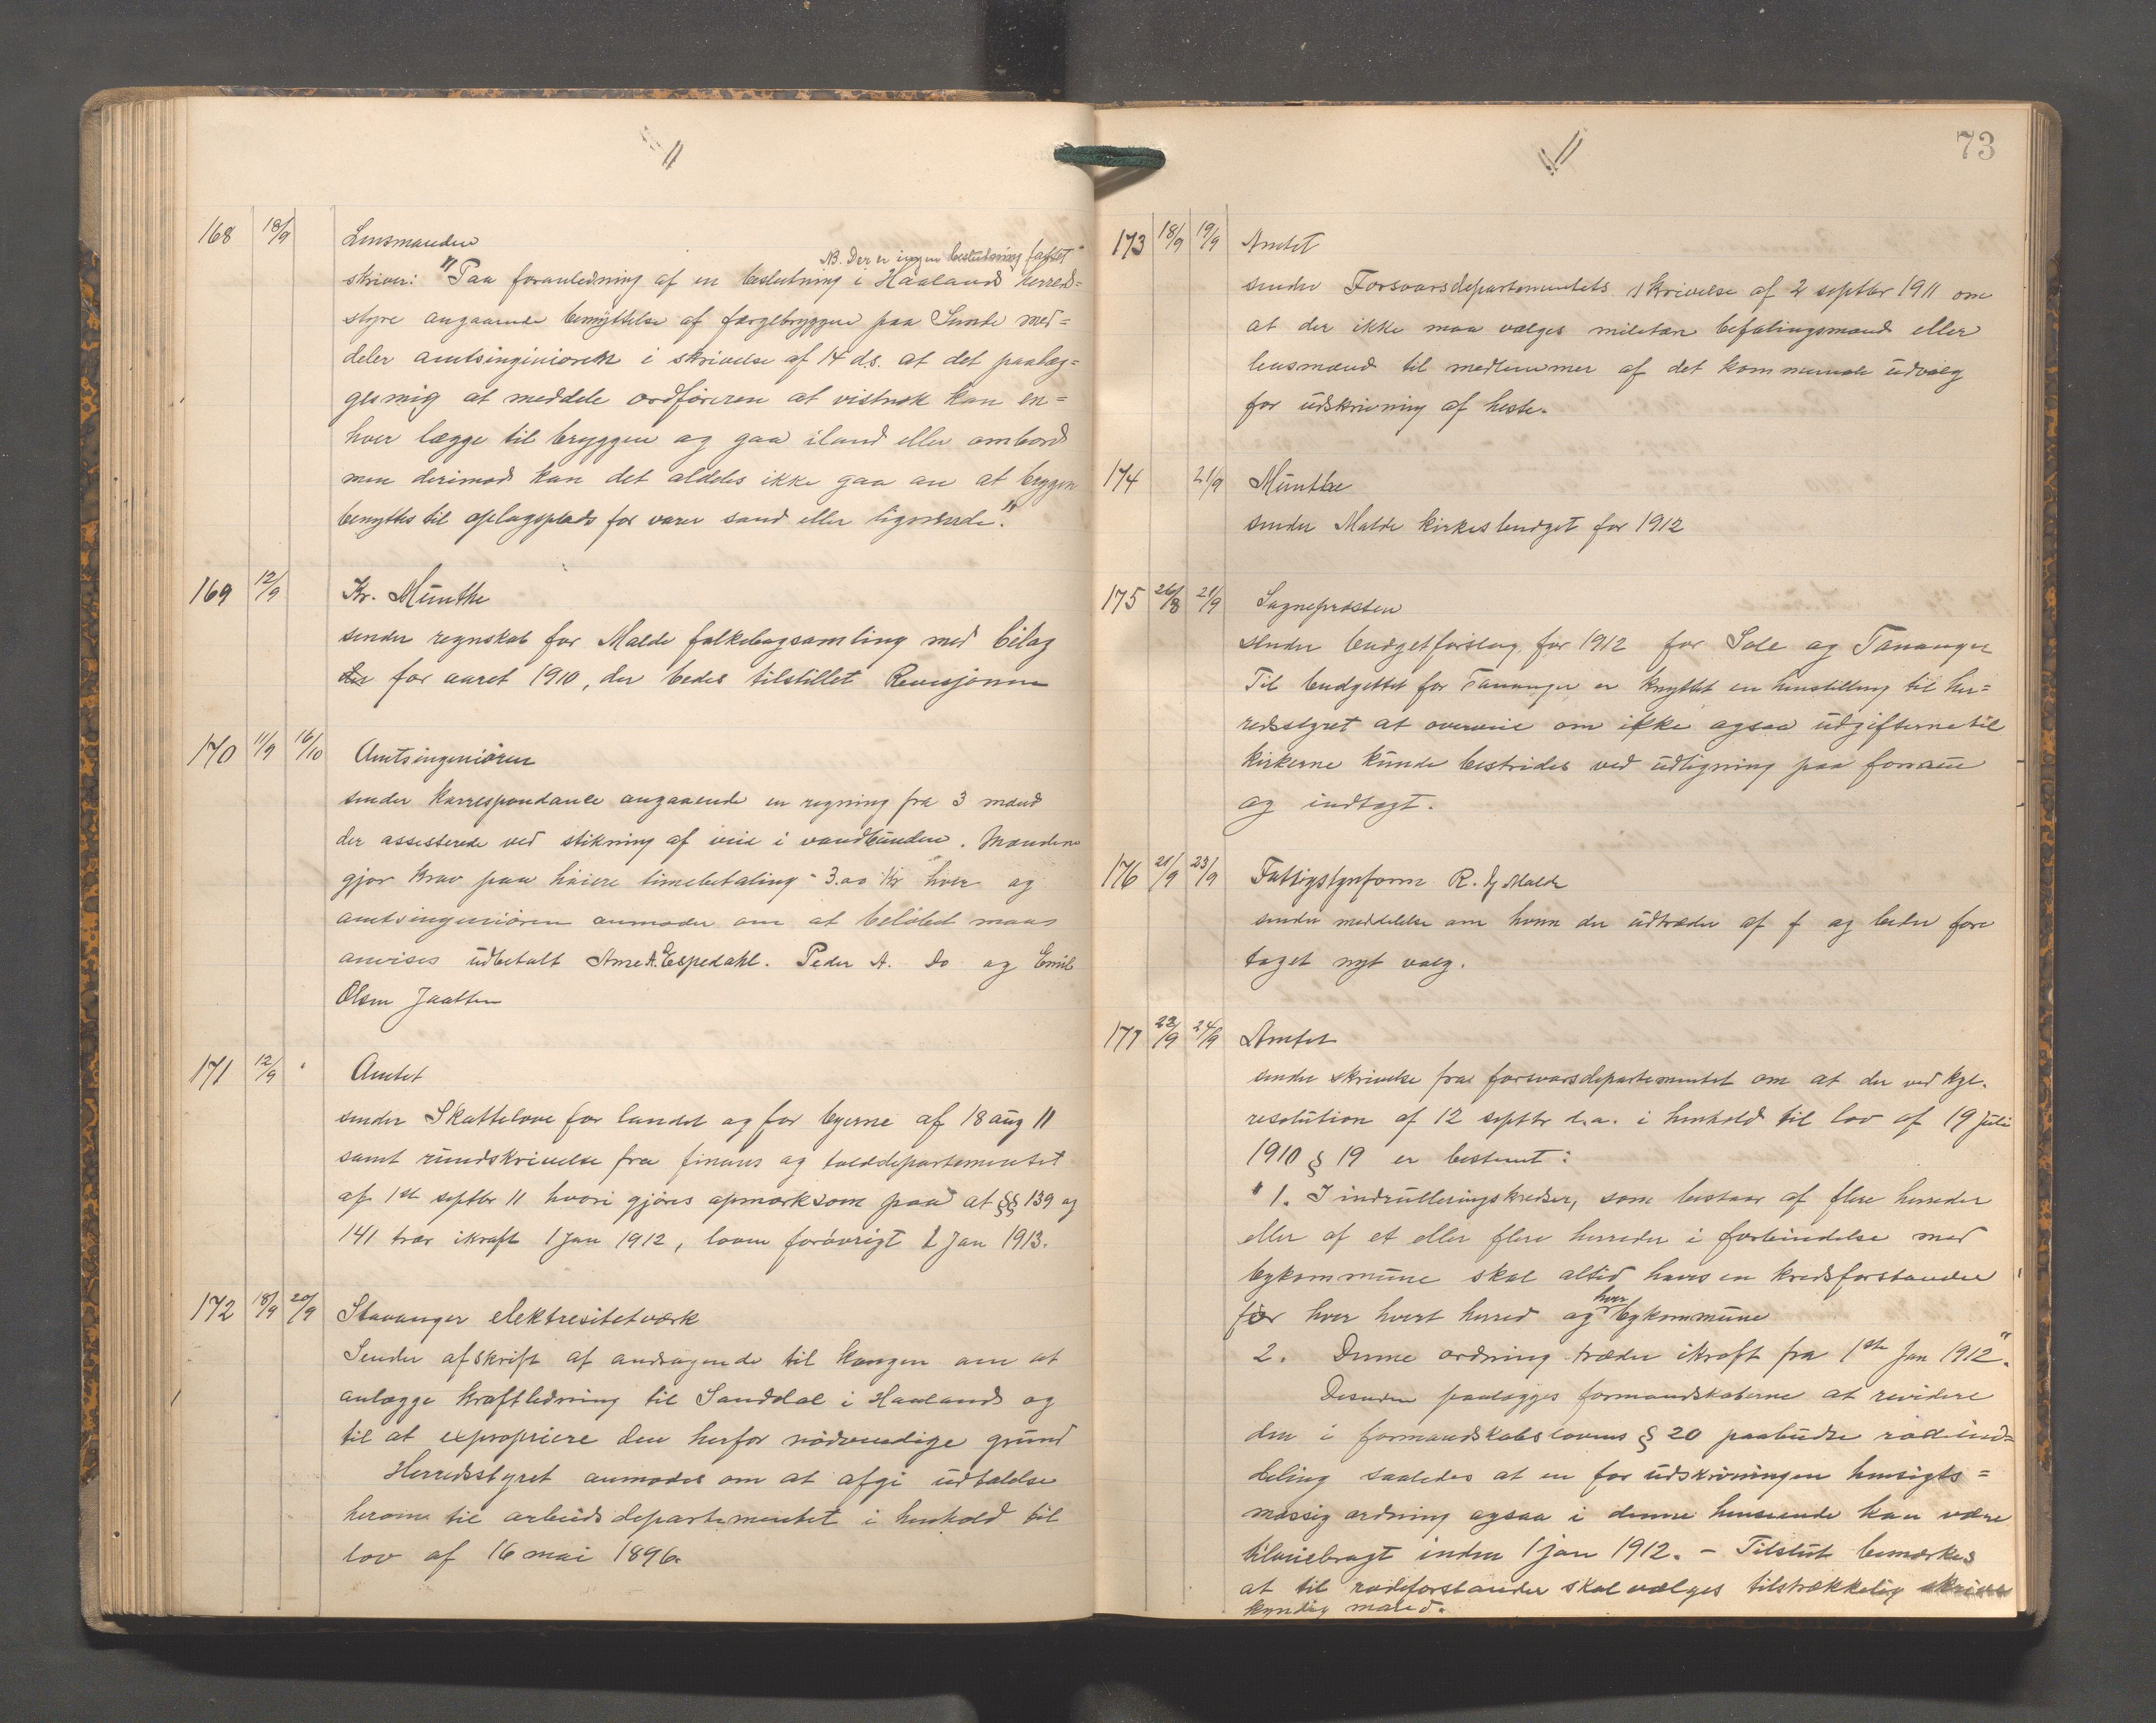 11
168 18/9 Lensmanden
NB. Der er ingen beslutning fattet
skriver: "Paa foranledning af en beslutning i Haalands herreds=
styre angaaende benyttelse af færgebryggen paa Sunde med=
deler amtsingeniøren i skrivelse af 14 d.s. at det paalæg=
ges mig at meddele ordføreren at vistnok kan en=
hver lægge til bryggen og gaa iland eller ombord
men derimod kan det aldeles ikke gaa an at bryggen
benyttes til oplagsplads for varer sand eller lignende."
169 12/9 Kr. Münthe
sender regnskab for Malde folkebogsamling med bilag
for aaret 1910, der bedes tilstillet Revisjonen
170 11/9 16/10 Amtsingeniøren
sender korrespondance angaaende en regning fra 3 mænd
der assisterede ved stikning af veie i vandbunden. Mændene
gjør krav paa høiere timebetaling - 3.00 Kr hver og
amtsingeniøren anmoder om at beløbet maa
anvises udbetalt Arne A. Espedahl. Peder A. Do og Emil
Olsen Jaatten
171 12/9 " Amtet
sender Skattelove for landet og for byerne af 18 aug 11
samt rundskrivelse fra finans og tolddepartementet
af 1ste septbr 11 hvori gjøres opmerksom paa at §§ 139 og
141 træ ikraft 1 Jan 1912, loven forøvrigt 1 Jan 1913.
172 18/9 20/9 Stavanger elektresitetværk
Sender afskrift af andragende til kongen om at
anlægge kraftledning til Sanddal i Haaland og
til at expropriere den herfor nødvendige grund
Herredsstyret anmodes om at afgi udtalelse
herom til arbeidsdepartementet i henhold til
lov af 16 mai 1896.
11 73
173 18/9 19/9 Amtet
sender Forsvarsdepartementets skrivelse af 2 septbr 1911 om
at der ikke maa vælges militær befalingsmænd eller
lensmænd til medlemmer af det kommunale udvalg
for udskrivning af heste.
174 21/9 Münthe
sender Malde kirkes budget for 1912
175 26/8 21/9 Sognepresten
sender budgetforslag for 1912 for Sole og Tananger
Til budgettet for Tananger er knyttet en henstilling til her=
redsstyret at overveie om ikke ogsaa udgifterne til
kirkerne kunde bestrides ved udligning paa formue
og indtægt.
176 21/9 23/9 Fattigstyreform R. Malde
sender meddelelse om hvem der udtræder af f og beder fore
taget nyt valg.
177 22/9 24/9 Amtet
sender skrivelse fra forsvarsdepartementet om at der ved kgl.
resolution af 12 septbr d.a. i henhold til lov af 19 juli
1910 § 19 er bestemt:
" 1. I indrulleringskredser, som bestaar af flere herreder
eller af et eller flere herreder i forbindelse med
bykommune skal altid haves en kredsforstander
for hver hvert herred og hver bykommune
2. Denne ordning træder ikraft fra 1ste Jan 1912".
Desuden paalægges formandskaberne at revidere
den i formandskabslovens § 20 paabudte rodeind=
deling saaledes at en for udskrivningen hensigts=
mæssig ordning ogsaa i denne henseende kan være
tilveiebragt inden 1 jan 1912. - Tilslut bemærkes
at til rodeforstander skal vælges tilstrækkelig skrive
kyndig mænd.